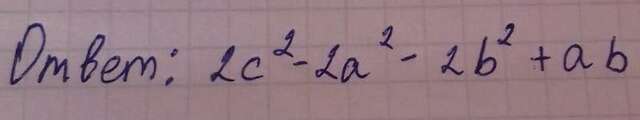 Ответ: 2c² - 2a² - 2b² + ab